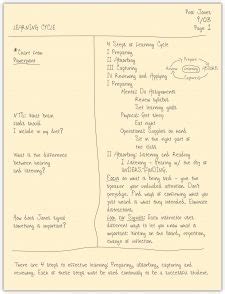 Rose Jones
9/03
Page 1
LEARNING CYCLE
*Chart from
Powerpoint
4 Steps of Learning Cycle
I Preparing
II Absorbing
III Capturing
IV Reviewing and Applying
Prepare
Absorb
Learning
Capture
I Preparing
Mental: Do Assignments
Review syllabus
Set learning goals
Physical: Get sleep
Eat right
Operational: Supplies on hand
Sit in the right part of
the class
NTS: What brain
foods should
I include in my diet?
What is the difference
between hearing
and listening?
II Absorbing: Listening and Reading
1 Listening - Hearing w/ the goal of
UNDERSTANDING.
Focus on what is being said - give the
speaker your undivided attention. Don't
prejudge. Find ways of connecting what you
just heard to what they intended. Eliminate
distractions.
How does Jones signal
something is important?
Look for Signals: Each instructor uses
different ways to let you know what is
important: writing on the board, repeating,
change of inflection.
There are 4 steps to effective learning: Preparing, absorbing, capturing and
reviewing. Each of these steps must be used continually to be a successful student.